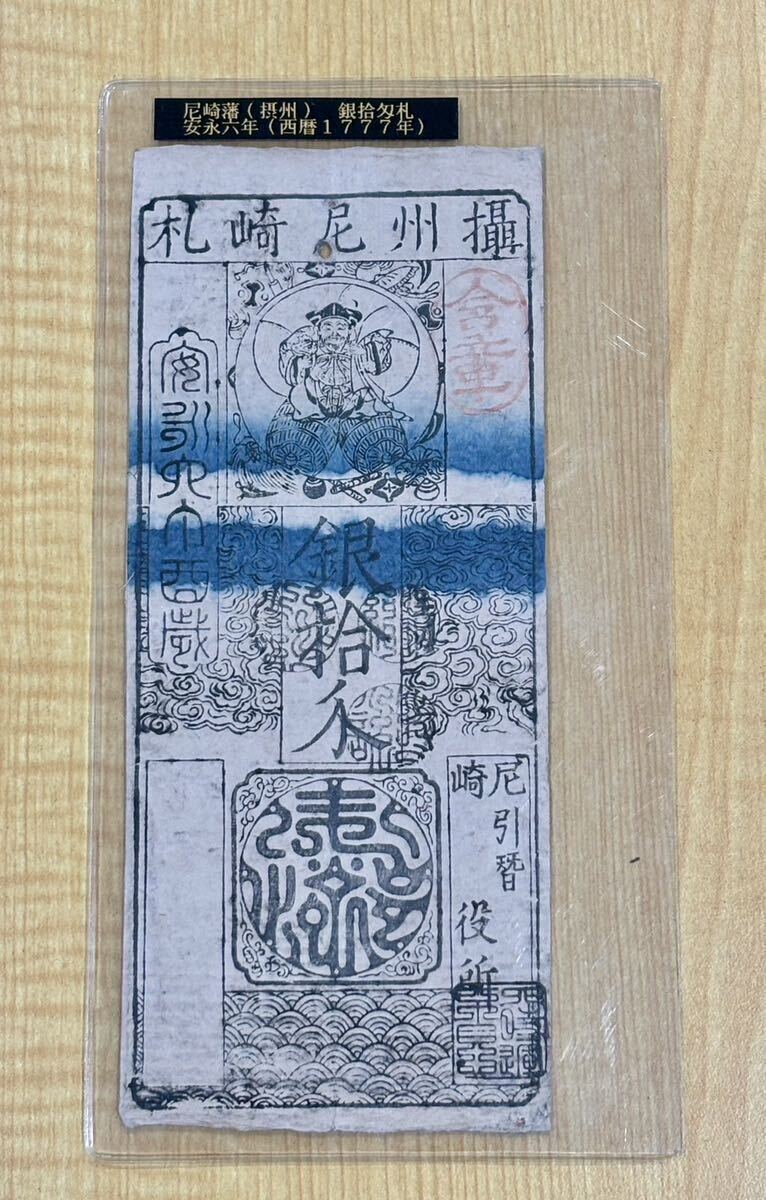 尼崎藩(摂州) 銀拾匁札
安永六年(西暦1777年)
攝州尼崎札
安永六丁酉歳
銀拾匁
尼崎
引替
役所